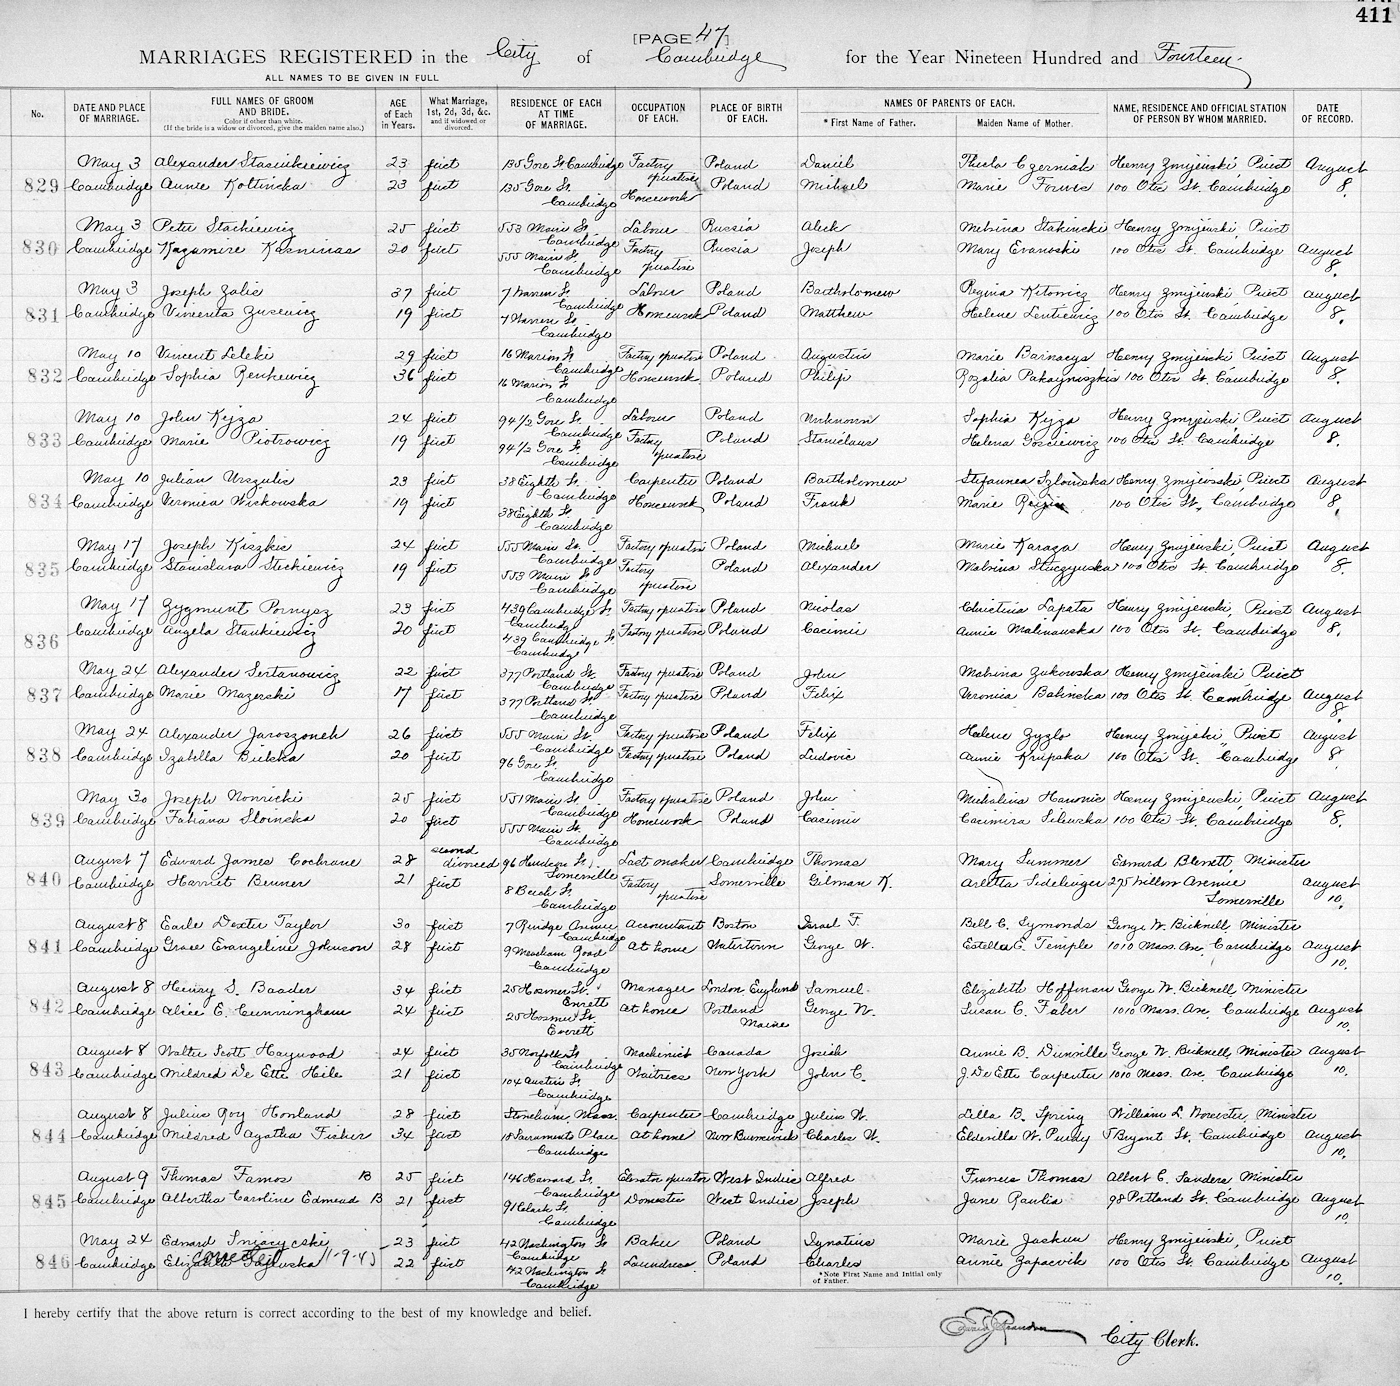 411
[PAGE 47]
MARRIAGES REGISTERED in the City of Cambridge for the Year Nineteen Hundred and Fourteen
ALL NAMES TO BE GIVEN IN FULL
No. DATE AND PLACE OF MARRIAGE. FULL NAMES OF GROOM AND BRIDE. Color if other than white. (If the bride is a widow or divorced, give the maiden name also.) AGE of Each in Years. What Marriage, 1st, 2d, 3d, &c. and if widowed or divorced. RESIDENCE OF EACH AT TIME OF MARRIAGE. OCCUPATION OF EACH. PLACE OF BIRTH OF EACH. NAMES OF PARENTS OF EACH. * First Name of Father. Maiden Name of Mother. NAME, RESIDENCE AND OFFICIAL STATION OF PERSON BY WHOM MARRIED. DATE OF RECORD.
May 3 Alexander Stasinkiewicz 23 first 135 Gore St Cambridge Factory operative Poland Daniel Thecla Czerniak Henry Zmijewski, Priest August
829 Cambridge Annie Koltincka 23 first 135 Gore St. Cambridge Homework Poland Michael Marie 100 Otis St. Cambridge 8.
May 3 Peter Stackiewicz 25 first 553 Main St Cambridge Labour Russia Aleck Melvina Stakincki Henry Zmijewski, Priest
830 Cambridge Kazamire Kasninas 20 first 555 Main St. Cambridge Factory operative Russia Joseph Mary Evanoski 100 Otis St. Cambridge August 8.
May 3 Joseph Zalis 37 first 7 Warren St. Cambridge Labour Poland Bartholomew Regina Kitowicz Henry Zmijewski, Priest August
831 Cambridge Vincenta Zusewicz 19 first 7 Warren St. Cambridge Homework Poland Matthew Helene Lentiewicz 100 Otis St. Cambridge 8.
May 10 Vincent Leleki 29 first 16 Marion St Cambridge Factory operative Poland Augustin Marie Barnacys Henry Zmijewski, Priest August
832 Cambridge Sophia Renkewicz 36 first 16 Marion St Cambridge Homework Poland Philip Rozalia 100 Otis St. Cambridge 8.
May 10 John Kijza 24 first 94 1/2 Gore St. Cambridge Labour Poland Unknown Sophia Kijza Henry Zmijewski, Priest August
833 Cambridge Marie Piotrowicz 19 first 94 1/2 Gore St. Cambridge Factory operative Poland Stanislaus Helena Gosciewicz 100 Otis St. Cambridge 8.
May 10 Julian Urszulic 23 first 38 Eighth St. Cambridge Carpenter Poland Bartholomew Stefannea Szloinska Henry Zmijewski, Priest August
834 Cambridge Veronica Wiskowska 19 first 38 Eighth St. Cambridge Homework Poland Frank Marie 100 Otis St. Cambridge 8.
May 17 Joseph Kiszkis 24 first 555 Main St. Cambridge Factory operative Poland Michael Marie Karaza Henry Zmijewski, Priest August
835 Cambridge Stanislava Stickiewicz 19 first 553 Main St Cambridge Factory operative Poland Alexander Malvina Stuczynska 100 Otis St. Cambridge 8.
May 17 Zygmunt Pornysz 23 first 439 Cambridge St. Cambridge Factory operative Poland Nicolas Christina Lapata Henry Zmijewski, Priest August
836 Cambridge Angela Stankiewicz 20 first 439 Cambridge St. Cambridge Factory operative Poland Casimir Annie Malinawska 100 Otis St. Cambridge 8.
May 24 Alexander Sertanowicz 22 first 377 Portland St. Cambridge Factory operative Poland John Malvina Zukowska Henry Zmijewski Priest
837 Cambridge Marie Mazerski 17 first 377 Portland St. Cambridge Factory operative Poland Felix Veronica Balinska 100 Otis St. Cambridge August 8.
May 24 Alexander Jaroszonek 26 first 555 Main St. Cambridge Factory operative Poland Felix Helene Zyzlo Henry Zmijewski, Priest August
838 Cambridge Izabella Bielska 20 first 96 Gore St. Cambridge Factory operative Poland Ludovic Annie Krupska 100 Otis St. Cambridge 8.
May 30 Joseph Nonricki 25 first 551 Main St. Cambridge Factory operative Poland John Michalina Hanonic Henry Zmijewski, Priest August
839 Cambridge Tatiana Sloincka 20 first 555 Main St. Cambridge Homework Poland Casimir Casimira Silewska 100 Otis St. Cambridge 8.
August 7 Edward James Cochrane 28 second divorced 96 Hudson St. Somerville Last maker Cambridge Thomas Mary Summer Edward Blewett, Minister
840 Cambridge Harriet Benner 21 first 8 Beech St. Cambridge Factory operative Somerville Gilman K. Aletta Sidelinger 275 Willow Avenue Somerville August 10.
August 8 Earle Dexter Taylor 30 first 7 Rindge Avenue Cambridge Accountant Boston Israel F. Bell C. Symonds George W. Bicknell, Minister
841 Cambridge Grace Evangeline Johnson 28 first 9 Meacham Road Cambridge At home Watertown George W. Estella E. Temple 1010 Mass. Ave. Cambridge August 10.
August 8 Henry S. Baader 34 first 25 Hosmer St. Everett Manager London, England Samuel Elizabeth Hoffman George W. Bicknell Minister
842 Cambridge Alice E. Cunningham 24 first 25 Hosmer St Everett At home Portland Maine George W. Susan C. Faber 1010 Mass. Ave. Cambridge August 10.
August 8 Walter Scott Haywood 24 first 35 Norfolk St Cambridge Machinist Canada Josiah Annie B. Dunville George W. Bicknell, Minister August
843 Cambridge Mildred De Ette Hile 21 first 104 Austin St. Cambridge Waitress New York John C. J. De Ette Carpenter 1010 Mass. Ave. Cambridge 10.
August 8 Julius Roy Howland 28 first Stoneham, Mass. Carpenter Cambridge Julius W. Lilla B. Spring William L. Worcester Minister
844 Cambridge Mildred Agatha Fisher 34 first 18 Sacramento Place Cambridge At home New Brunswick Charles W. Eldevilla W. Purdy 5 Bryant St. Cambridge August 10.
August 9 Thomas Famos B 25 first 146 Harvard St. Cambridge Elevator operator West Indies Alfred Frances Thomas Albert C. Sanders Minister
845 Cambridge Albertha Caroline Edmead B 21 first 91 Clark St. Cambridge Domestic West Indies Joseph Jane Raulia 98 Portland St. Cambridge August 10.
May 24 Edward Sniacycski 23 first 42 Washington St Cambridge Baker Poland Ignatius Marie Jaskun Henry Zmijewski, Priest
846 Cambridge Elizabeth corrected 11-9-45 22 first 42 Washington St Cambridge Laundress Poland Charles Annie Zapasnik 100 Otis St. Cambridge August 10.
*Note First Name and Initial only of Father.
I hereby certify that the above return is correct according to the best of my knowledge and belief.
Edward J. Brandon City Clerk.